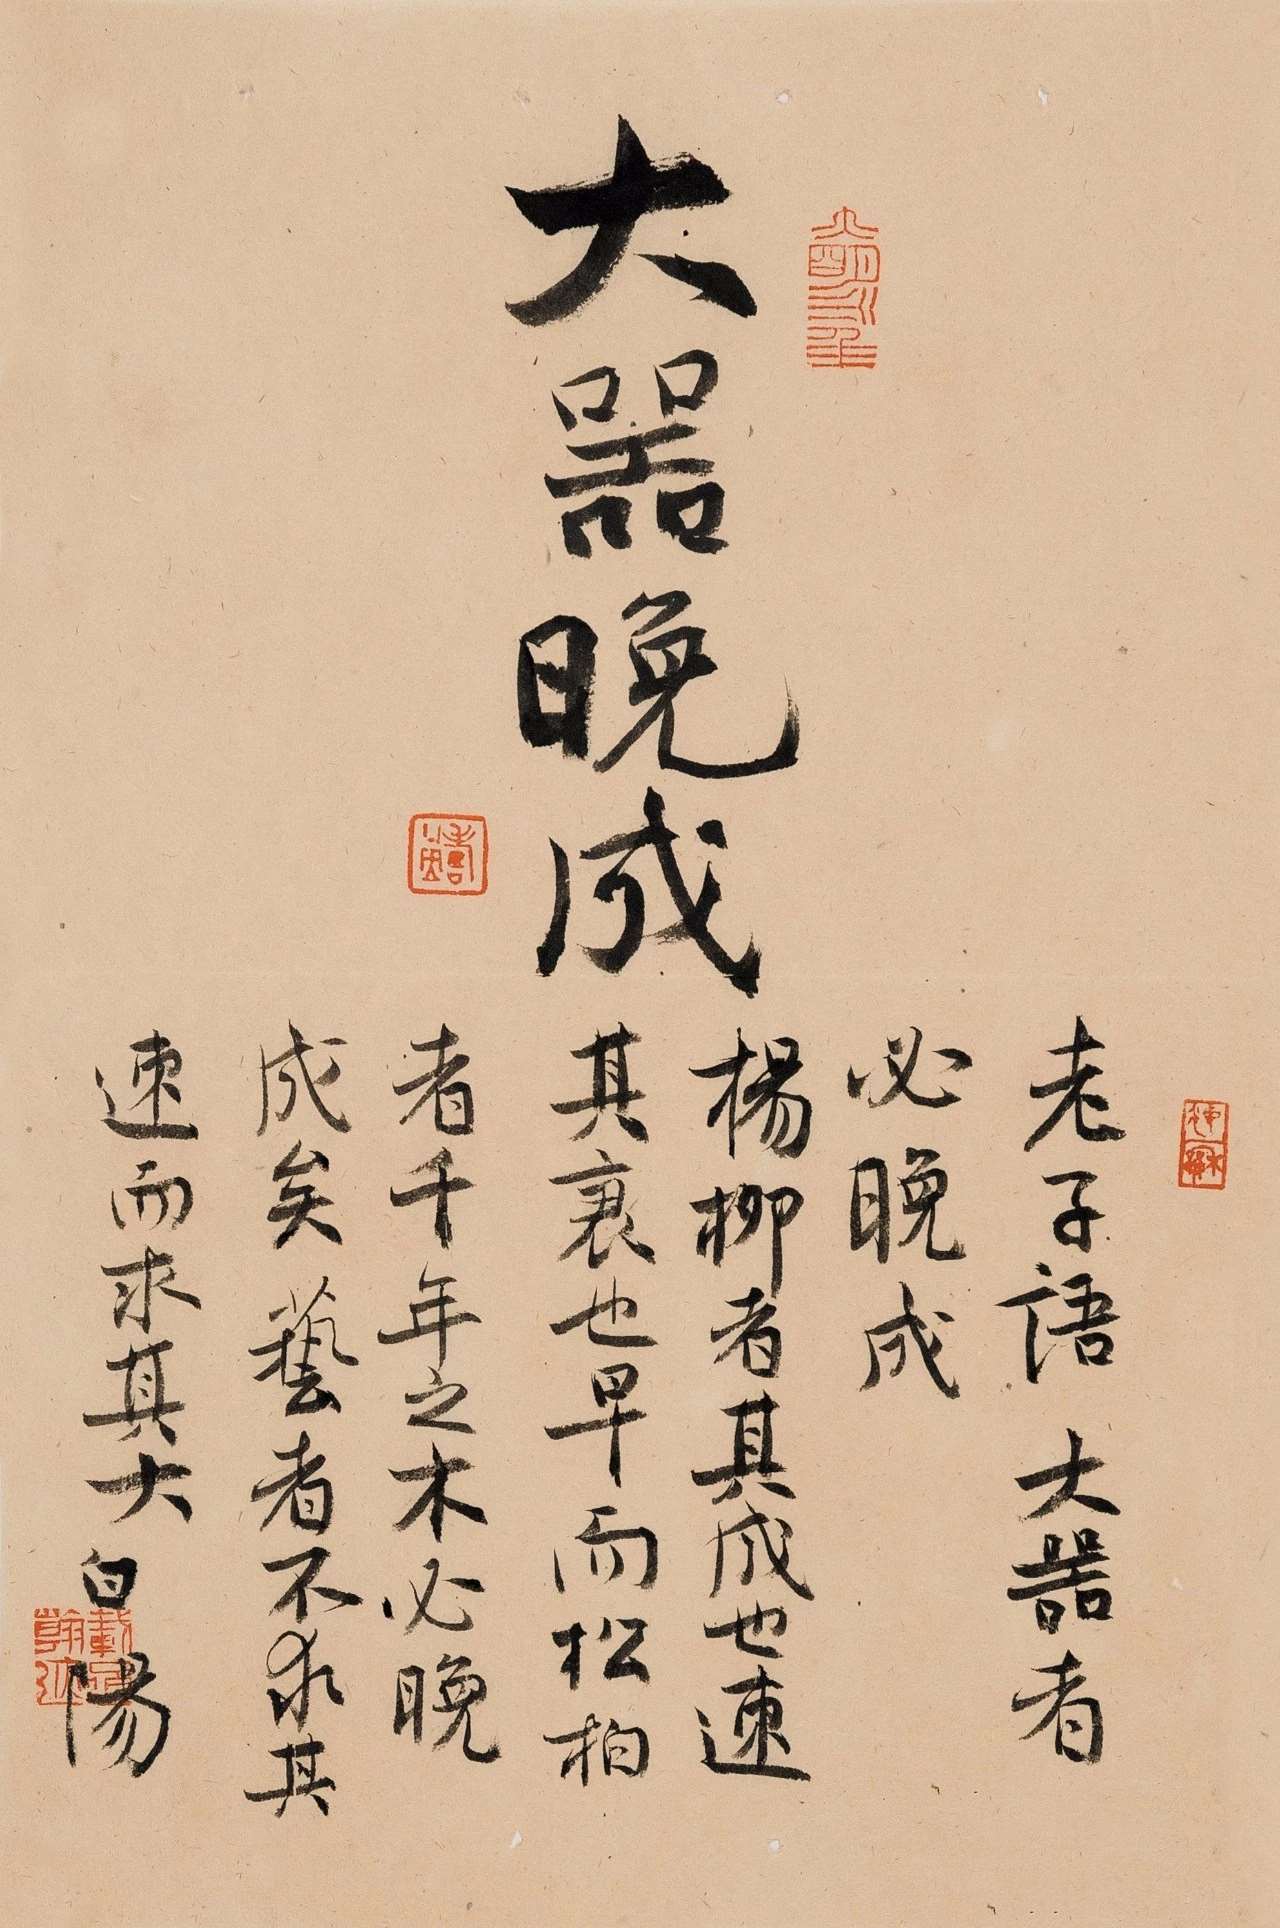 大器晚成
老子語 大器者
必晚成
楊柳者其成也速
其衰也早而松柏
者千年之木必晚
成矣藝者不求其
速而求其大 白陽